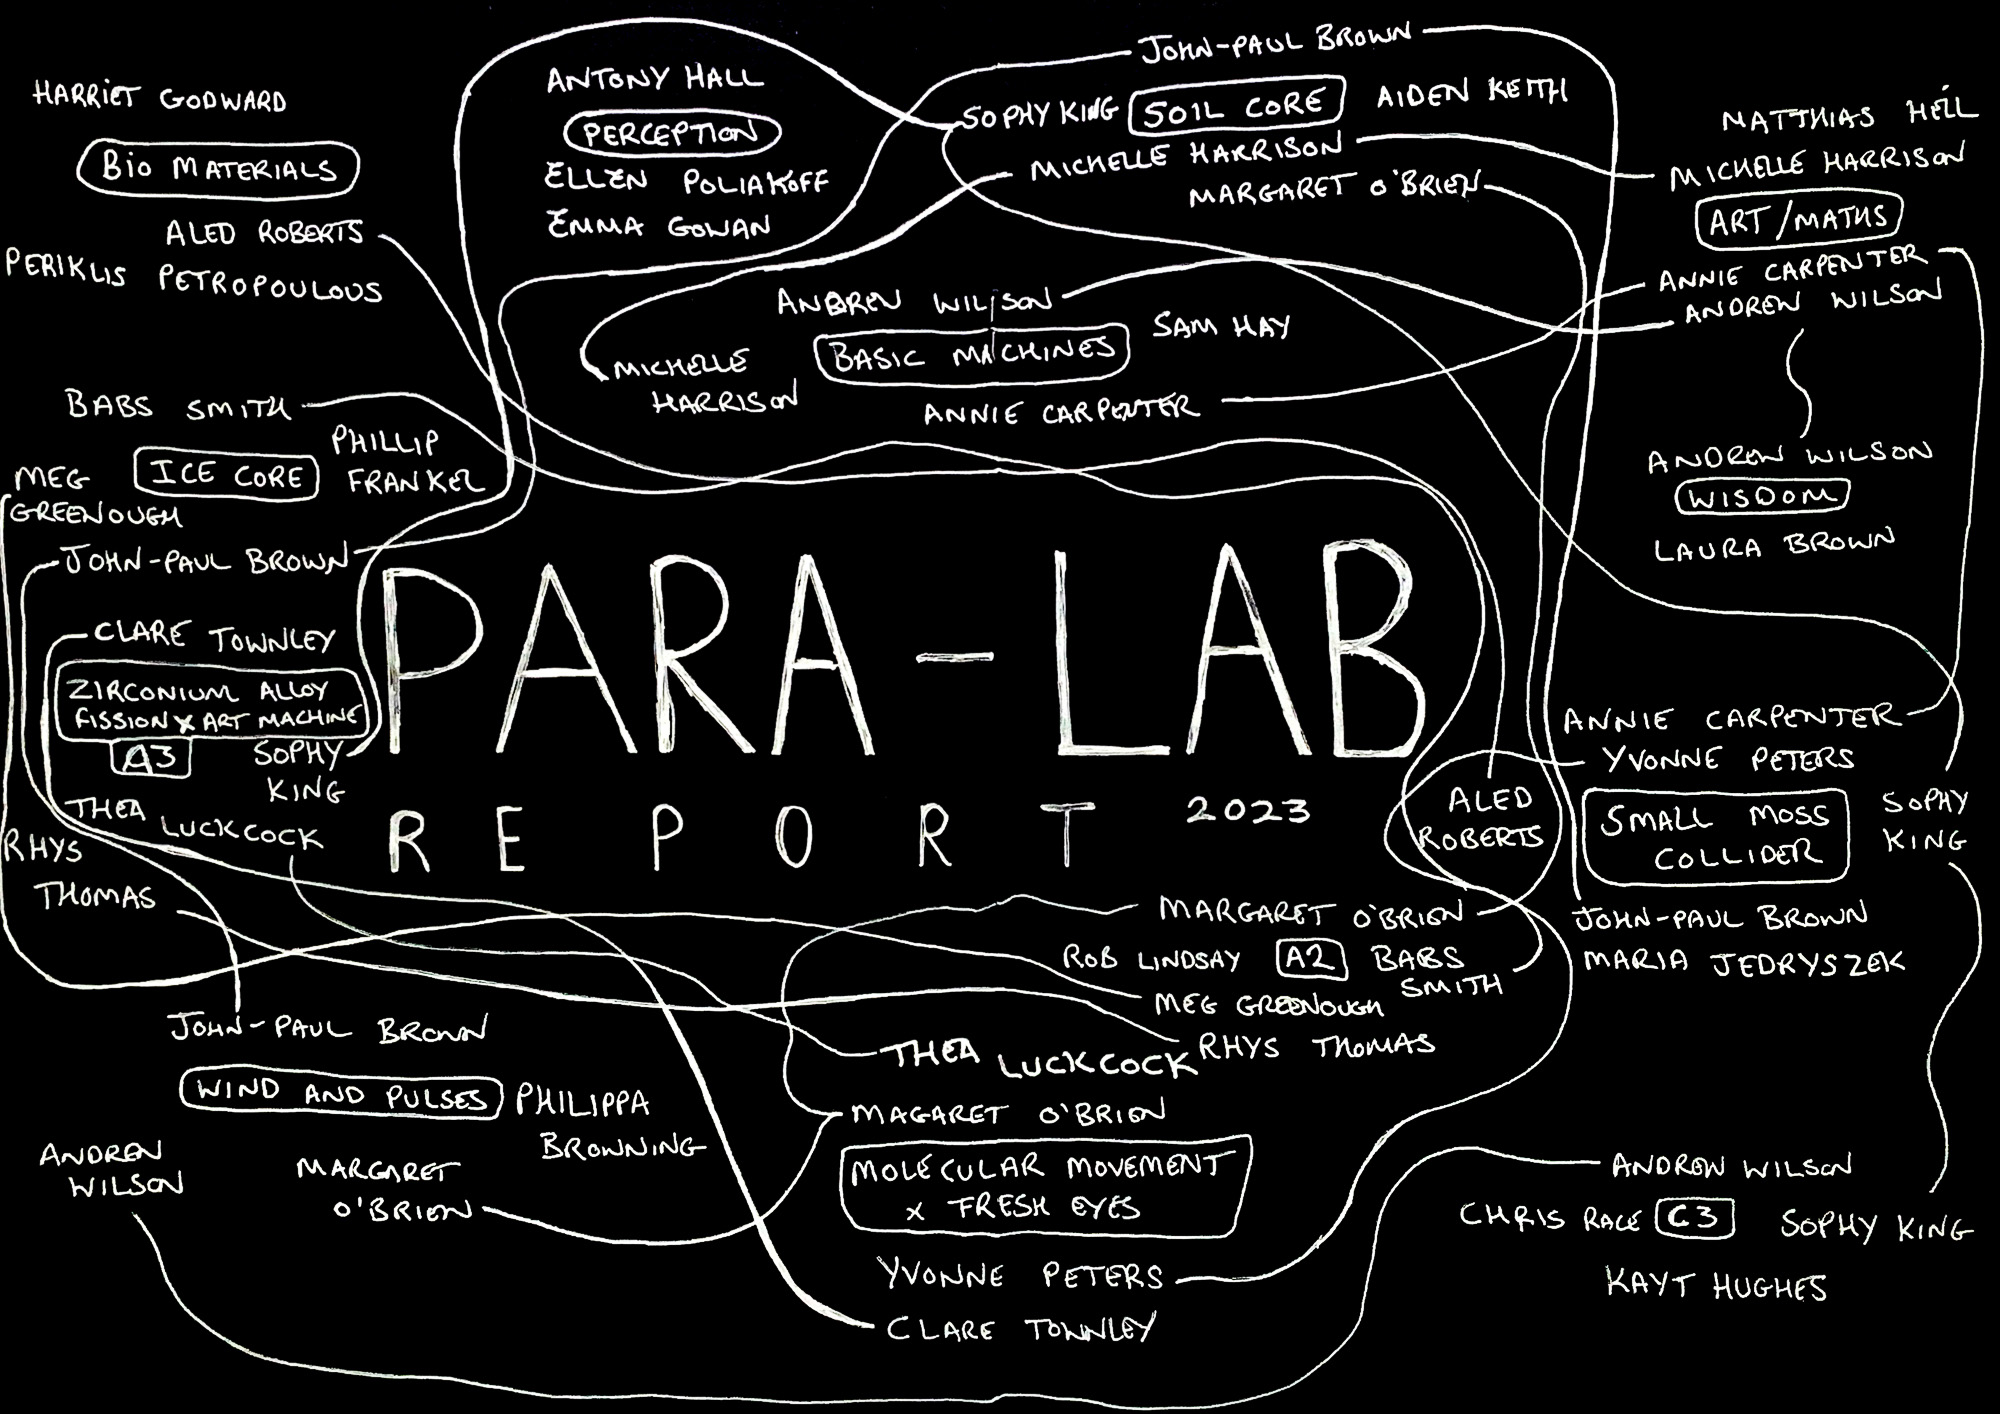 HARRIET GODWARD
BIO MATERIALS
ALED ROBERTS
PERIKLIS PETROPOULOUS
ANTONY HALL
PERCEPTION
ELLEN POLIAKOFF
EMMA GOWAN
JOHN-PAUL BROWN
SOPHY KING SOIL CORE AIDEN KEITH
MICHELLE HARRISON
MARGARET O'BRIEN
MATTHIAS HEIL
MICHELLE HARRISON
ART/MATHS
ANNIE CARPENTER
ANDREW WILSON
ANDREW WILSON
BASIC MACHINES
SAM HAY
MICHELLE
HARRISON
ANNIE CARPENTER
ANDREW WILSON
WISDOM
LAURA BROWN
BABS SMITH
ICE CORE
PHILLIP
FRANKEL
MEG
GREENOUGH
JOHN-PAUL BROWN
CLARE TOWNLEY
ZIRCONIUM ALLOY
FISSION X ART MACHINE
A3
SOPHY
KING
THEA LUCKCOCK
RHYS
THOMAS
PARA-LAB
REPORT 2023
ALED
ROBERTS
ANNIE CARPENTER
YVONNE PETERS
SMALL MOSS
COLLIDER
SOPHY
KING
JOHN-PAUL BROWN
MARIA JEDRYSZEK
MARGARET O'BRIEN
ROB LINDSAY A2 BABS
SMITH
MEG GREENOUGH
RHYS THOMAS
THEA LUCKCOCK
MAGARET O'BRIEN
MOLECULAR MOVEMENT
X FRESH EYES
YVONNE PETERS
CLARE TOWNLEY
JOHN-PAUL BROWN
WIND AND PULSES
PHILIPPA
BROWNING
ANDREW
WILSON
MARGARET
O'BRIEN
ANDREW WILSON
CHRIS RACE C3 SOPHY KING
KAYT HUGHES